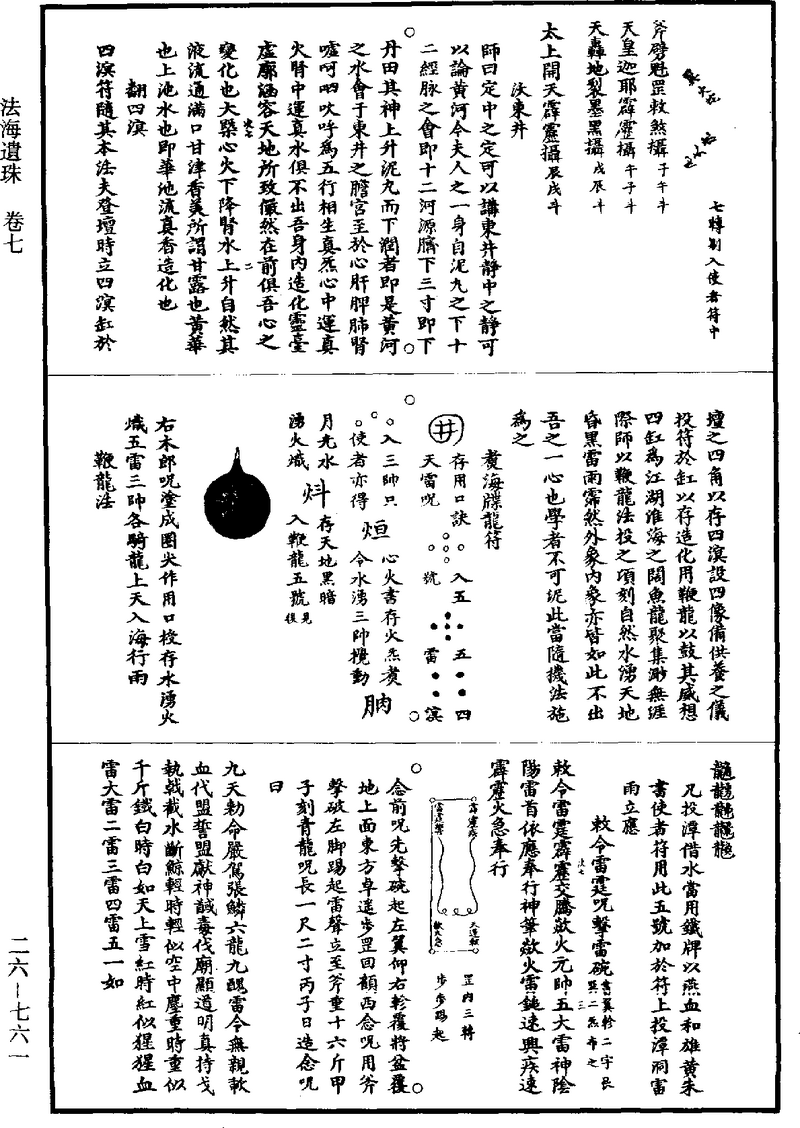 法海遺珠 卷七
二六—七六一
斧劈魁罡敕煞攝子午斗
天皇迦耶霹靂攝午子斗
天轟地裂墨黑攝戌辰斗
太上開天霹靂攝辰戌斗
七轉別入使者符中
汰東井
師曰定中之定可以講東井靜中之靜可
以論黃河今夫人之一身自泥九之下十
二經脉之會即十二河源臍下三寸即下
丹田其神上升泥九而下潤者即是黃河
之水會于東井之膽宮至於心肝脾肺腎
噓呵呬吹呼為五行相生真炁心中運真
火腎中運真水俱不出吾身內造化靈臺
虛廓涵容天地所致儼然在前俱吾心之
變化也大槩心火下降腎水上升自然其
液流通滿口甘津香美所謂甘露也黃華
也上池水也即華池流真香造化也
翻四溟
四溟符隨其本法夫登壇時立四溟缸於
壇之四角以存四溟設四像備供養之儀
投符於缸以存造化用鞭龍以鼓其威想
四缸為江湖淮海之闊魚龍聚集渺無涯
際師以鞭龍法投之頃刻自然水湧天地
昏黑雷雨霈然外象內象亦皆如此不出
吾之一心也學者不可泥此當隨機法施
為之
煑海牒龍符
井
存用口訣
入五
五
四
天雷呪
號
雷
溟
入三帥只
心火書存火炁煑
使者亦得
烜
令水湧三帥攪動
月光水
存天地黑暗
湧火熾
入鞭龍五號見後
右木郎呪塗成圈尖作用口投存水湧火
熾五雷三帥各騎龍上天入海行雨
鞭龍法
凡投潭借水當用鐵牌以燕血和雄黃朱
書使者符用此五號加於符上投潭洞雷
雨立應
敕令雷霆呪擊雷碗書翼軫二字艮巽二炁布之
敕令雷霆霹靂交騰歘火元帥五大雷神陰
陽雷首依應奉行神筆歘火雷鎚速興疾速
霹靂火急奉行
罡內三轉
步步踢起
念前呪先擊碗起左翼仰右軫覆將盆覆
地上面東方卓遥步罡回顧西念呪用斧
擊破左脚踢起雷聲立至斧重十六斤甲
子刻青龍呪長一尺二寸丙子日造念呪
曰
九天勅命嚴駕張鱗六龍九醜雷令無親歃
血代盟誓盟獻神誠毒伐廟顯道明真持戈
執戟截水斷鯨輕時輕似空中塵重時重似
千斤鐵白時白如天上雪紅時紅似猩猩血
雷大雷二雷三雷四雷五一如